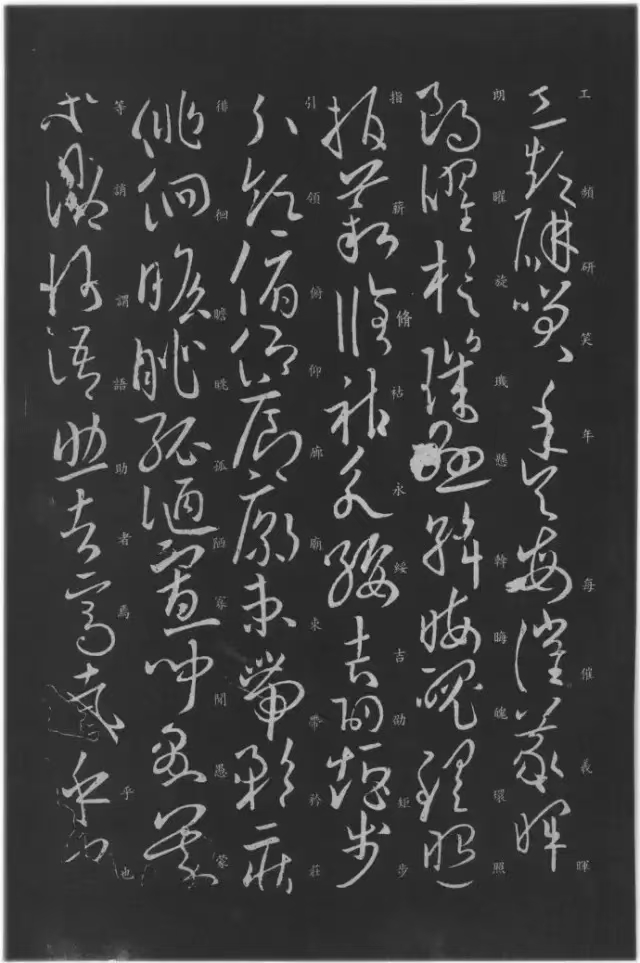 工頻研笑年矢每催羲暉
朗曜旋璣懸斡晦魄環照
指薪脩祜永綏吉劭矩步
引領俯仰廊廟束帶矜莊
徘徊瞻眺孤陋寡聞愚蒙
等誚謂語助者焉哉乎也